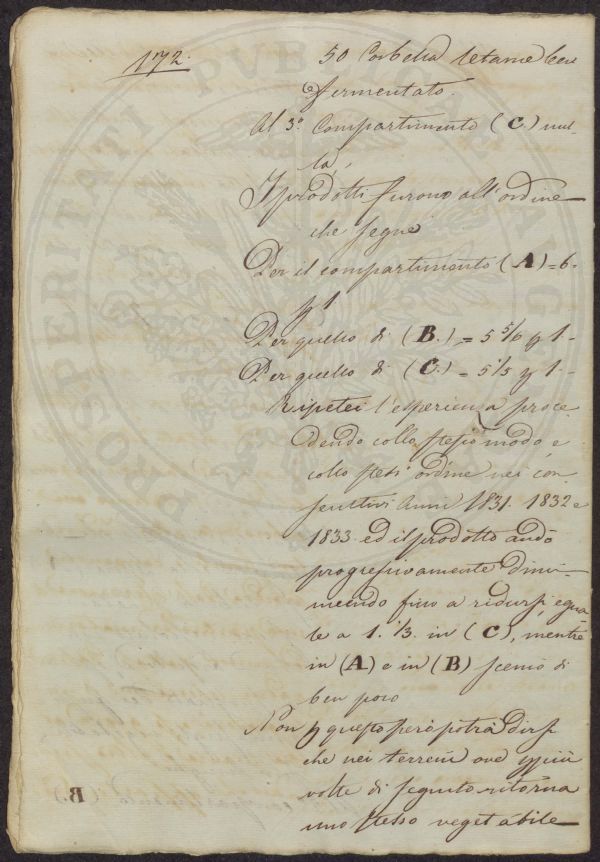 172.
50 Corbelia letame ben
fermentato.
Al 3º Compartimento (C.) nul-
la,
I prodotti furono all'ordine
che segue
Per il compartimento (A) = 6.
p 1
Per quello di (B.) = 5 5/6 p 1 -
Per quello di (C.) = 5 1/5 p 1 -
Ripetei l'esperienza proce-
dendo collo stesso modo, e
collo stess' ordine nei con-
secutivi Anni 1831. 1832 e
1833 ed il prodotto andò
progressivamente dimi-
nuendo fino a ridursi, egua-
le a 1. 1/3. in (C), mentre
in (A) e in (B) scemò di
ben poco
Non p questo però potrà dirsi
che nei terreni ove più
volte di seguito ritorna
uno stesso vegetabile
PROSPERITATI PVBLICAE AVG
(B.)